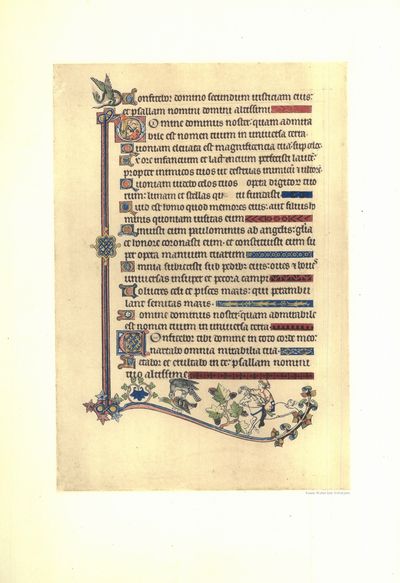 Confitebor domino secundum iusticiam eius:
et psallam nomini domini altissimi
Domine dominus noster: quam admira
bile est nomen tuum in universa terra
Quoniam elevata est magnificencia tua: super celos
Ex ore infancium et lactencium perfecisti laudem
propter inimicos tuos ut destruas inimicum
Quoniam videbo celos tuos opera digitorum tuo
rum: lunam et stellas que tu fundasti
Quid est homo quod memor es eius: aut filius ho
minis quoniam visitas eum
Minuisti eum paulominus ab angelis: gloria
et honore coronasti eum: et constituisti eum su
per opera manuum tuarum
Omnia subiecisti sub pedibus eius: oves et boves
universas insuper et pecora campi
Volucres celi et pisces maris: qui perambu
lant semitas maris
Domine dominus noster: quam admirabile
est nomen tuum in universa terra
Confitebor tibi domine in toto corde meo:
narrabo omnia mirabilia tua
Letabor et exultabo in te: psallam nomini
tuo altissime